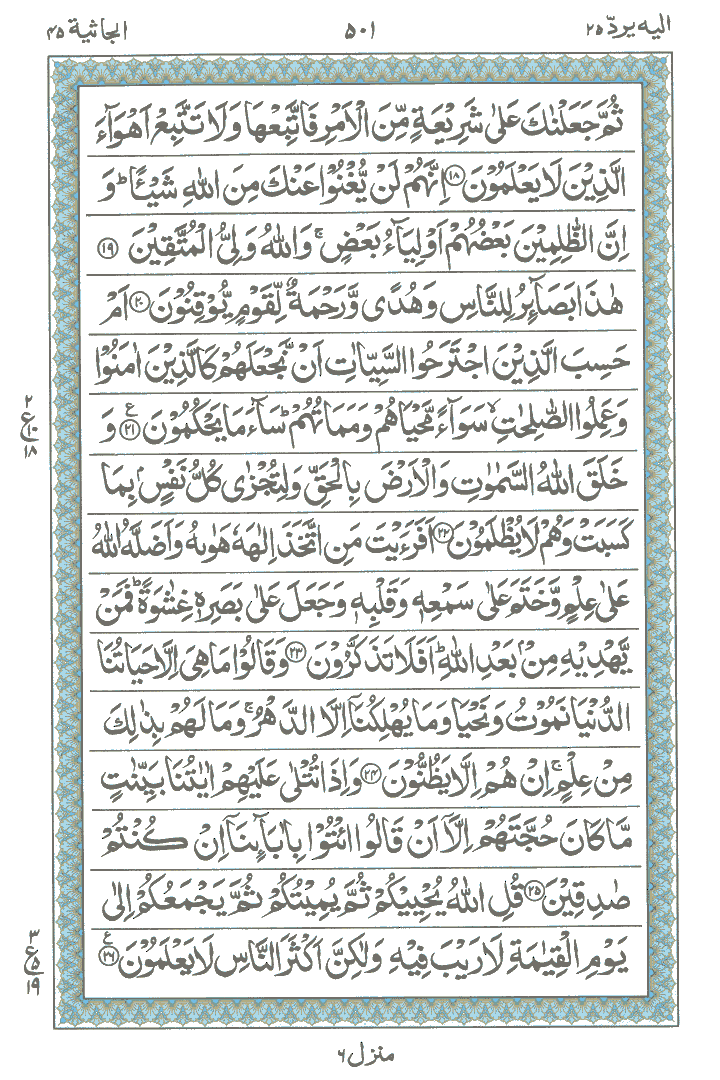 الیه یردّ ۲۵ ۵۰۱ الجاثیة ۴۵
ثُمَّ جَعَلْنٰكَ عَلٰى شَرِيْعَةٍ مِّنَ الْاَمْرِ فَاتَّبِعْهَا وَلَا تَتَّبِعْ اَهْوَآءَ
الَّذِيْنَ لَا يَعْلَمُوْنَ ۝۱۸ اِنَّهُمْ لَنْ يُّغْنُوْا عَنْكَ مِنَ اللّٰهِ شَيْـًٔاؕ وَ
اِنَّ الظّٰلِمِيْنَ بَعْضُهُمْ اَوْلِيَآءُ بَعْضٍۚ وَاللّٰهُ وَلِيُّ الْمُتَّقِيْنَ ۝۱۹
هٰذَا بَصَآئِرُ لِلنَّاسِ وَهُدًى وَّرَحْمَةٌ لِّقَوْمٍ يُّوْقِنُوْنَ ۝۲۰ اَمْ
حَسِبَ الَّذِيْنَ اجْتَرَحُوا السَّيِّاٰتِ اَنْ نَّجْعَلَهُمْ كَالَّذِيْنَ اٰمَنُوْا
وَعَمِلُوا الصّٰلِحٰتِۙ سَوَآءً مَّحْيَاهُمْ وَمَمَاتُهُمْؕ سَآءَ مَا يَحْكُمُوْنَ ۝۲۱ ع وَ
۲
ع
۱۰
۱۸
خَلَقَ اللّٰهُ السَّمٰوٰتِ وَالْاَرْضَ بِالْحَقِّ وَلِتُجْزٰى كُلُّ نَفْسٍۭ بِمَا
كَسَبَتْ وَهُمْ لَا يُظْلَمُوْنَ ۝۲۲ اَفَرَءَيْتَ مَنِ اتَّخَذَ اِلٰهَهٗ هَوٰىهُ وَاَضَلَّهُ اللّٰهُ
عَلٰى عِلْمٍ وَّخَتَمَ عَلٰى سَمْعِهٖ وَقَلْبِهٖ وَجَعَلَ عَلٰى بَصَرِهٖ غِشٰوَةًؕ فَمَنْ
يَّهْدِيْهِ مِنْۢ بَعْدِ اللّٰهِؕ اَفَلَا تَذَكَّرُوْنَ ۝۲۳ وَقَالُوْا مَا هِىَ اِلَّا حَيَاتُنَا
الدُّنْيَا نَمُوْتُ وَنَحْيَا وَمَا يُهْلِكُنَآ اِلَّا الدَّهْرُۚ وَمَا لَهُمْ بِذٰلِكَ
مِنْ عِلْمٍۚ اِنْ هُمْ اِلَّا يَظُنُّوْنَ ۝۲۴ وَاِذَا تُتْلٰى عَلَيْهِمْ اٰيٰتُنَا بَيِّنٰتٍ
مَّا كَانَ حُجَّتَهُمْ اِلَّآ اَنْ قَالُوا ائْتُوْا بِاٰبَآئِنَآ اِنْ كُنْتُمْ
صٰدِقِيْنَ ۝۲۵ قُلِ اللّٰهُ يُحْيِيْكُمْ ثُمَّ يُمِيْتُكُمْ ثُمَّ يَجْمَعُكُمْ اِلٰى
يَوْمِ الْقِيٰمَةِ لَا رَيْبَ فِيْهِ وَلٰكِنَّ اَكْثَرَ النَّاسِ لَا يَعْلَمُوْنَ ۝۲۶ ع
۳
ع
۵
۱۹
منزل ۶